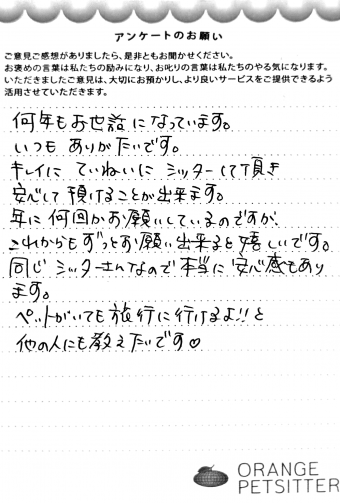 アンケートのお願い
ご意見ご感想がありましたら、是非ともお聞かせください。
お褒めの言葉は私たちの励みになり、お叱りの言葉は私たちのやる気になります。
いただきましたご意見は、大切にお預かりし、より良いサービスをご提供できるよう
活用させていただきます。
何年もお世話になっています。
いつもありがたいです。
キレイにていねいにシッターして頂き
安心して預けることが出来ます。
年に何回かお願いしているのですが、
これからもずっとお願い出来ると嬉しいです。
同じシッターさんなので本当に安心感もあり
ます。
ペットがいても旅行に行けるよ!!と
他の人にも教えたいです♡
ORANGE
PETSITTER